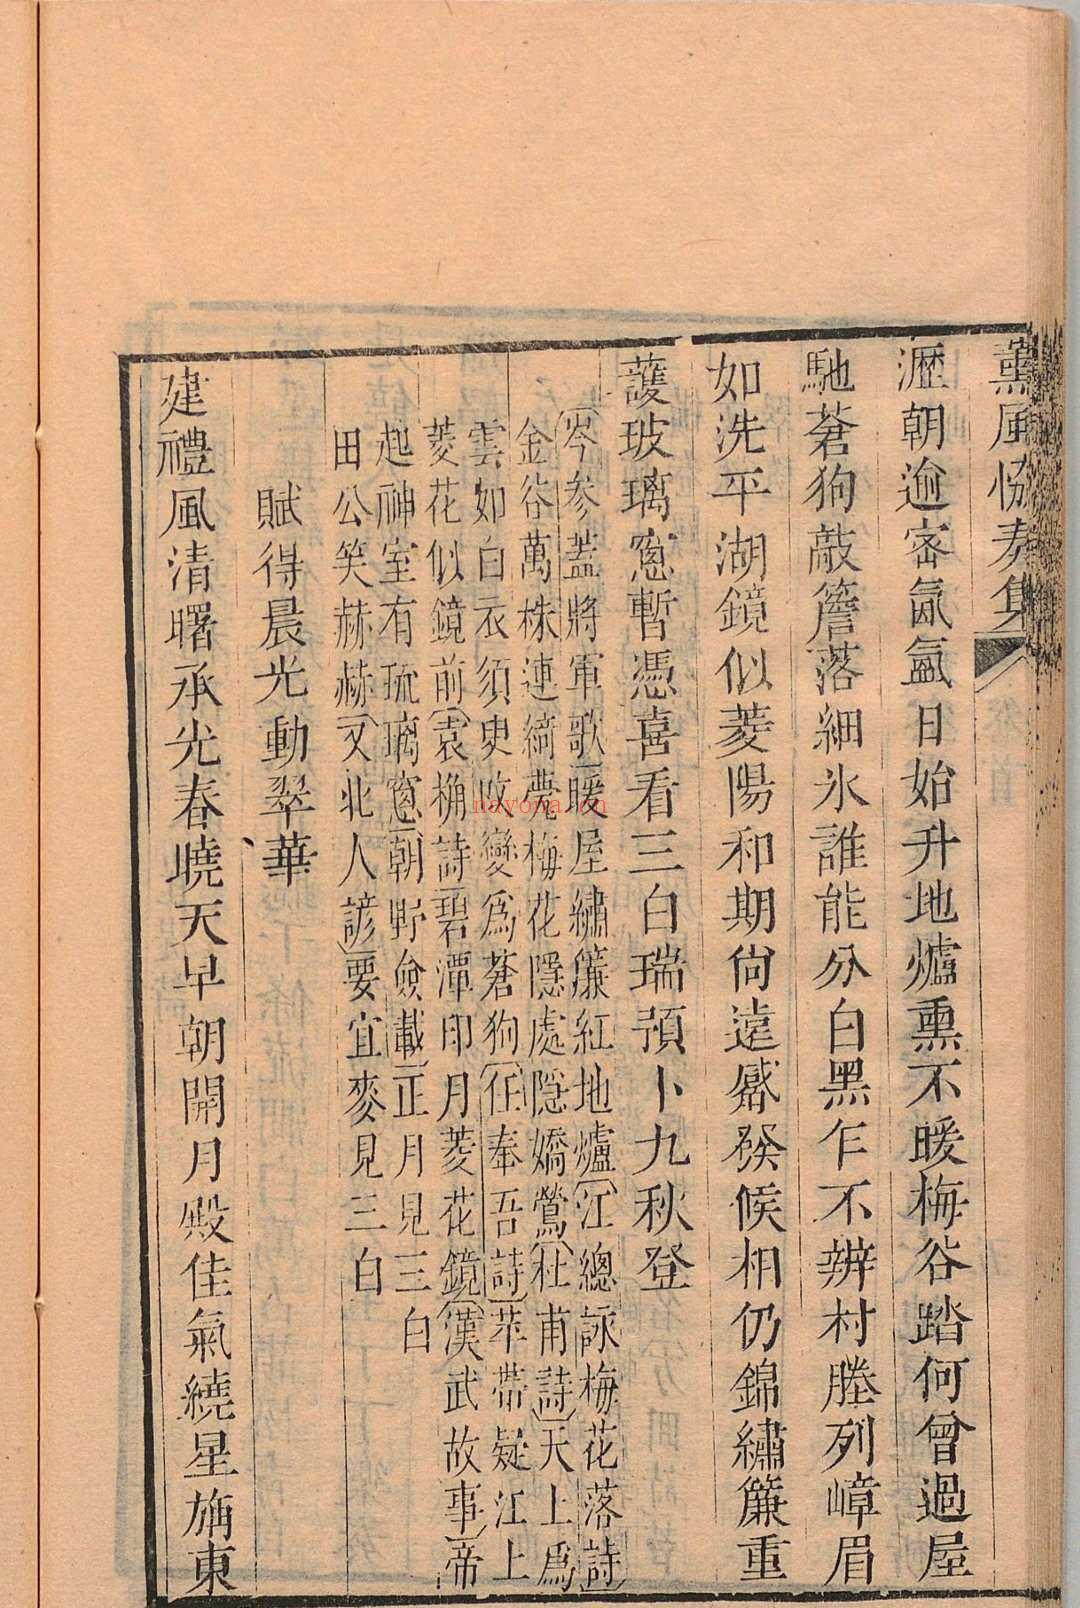 薰風協奏集
瀝朝逾密氤氳日始升地爐熏不暖梅谷踏何曾過屋
馳蒼狗敲簷落細氷誰能分白黑乍不辨村塍列嶂眉
如洗平湖鏡似菱陽和期尙遠觱發候相仍錦繡簾重
護玻璃窻暫憑喜看三白瑞預卜九秋登
岑參蓋將軍歌暖屋繡簾紅地爐江總詠梅花落詩
金谷萬株連綺甍梅花隱處隱嬌鶯杜甫詩天上爲
雲如白衣須臾攺變爲蒼狗任奉吾詩萍帶疑江上
菱花似鏡前袁桷詩碧潭印月菱花鏡漢武故事帝
起神室有琉璃窻朝野僉載正月見三白
田公笑赫赫又北人諺要宜麥見三白
賦得晨光動翠華
建禮風清曙承光春曉天早朝開月殿佳氣繞星旃東
nayona.cn